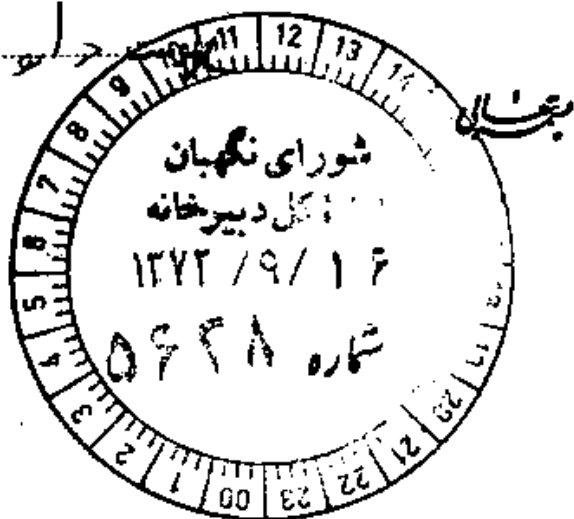 بسمه تعالی
شورای نگهبان
کل دبیرخانه
۱۳۷۳ /۹/ ۱۶
شماره
1 2 3 4 5 6 7 8 9 10 11 12 13 14
20 21 22 23 00